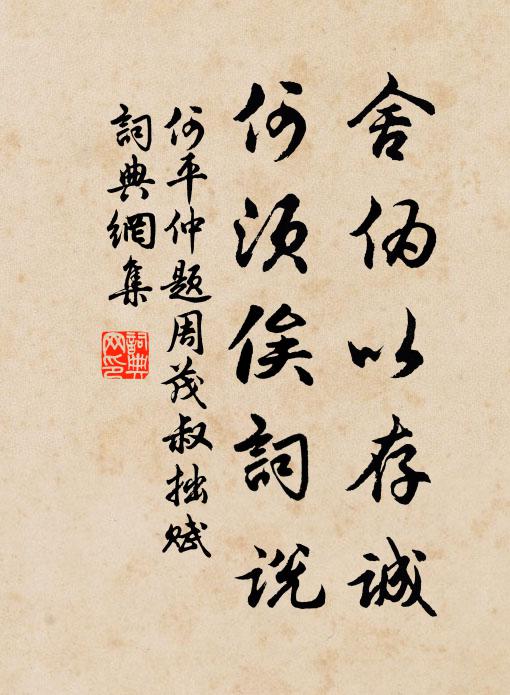 舍伪以存诚
何须俟词说
何平仲题周茂叔拙赋
詞典網集
詞典网印